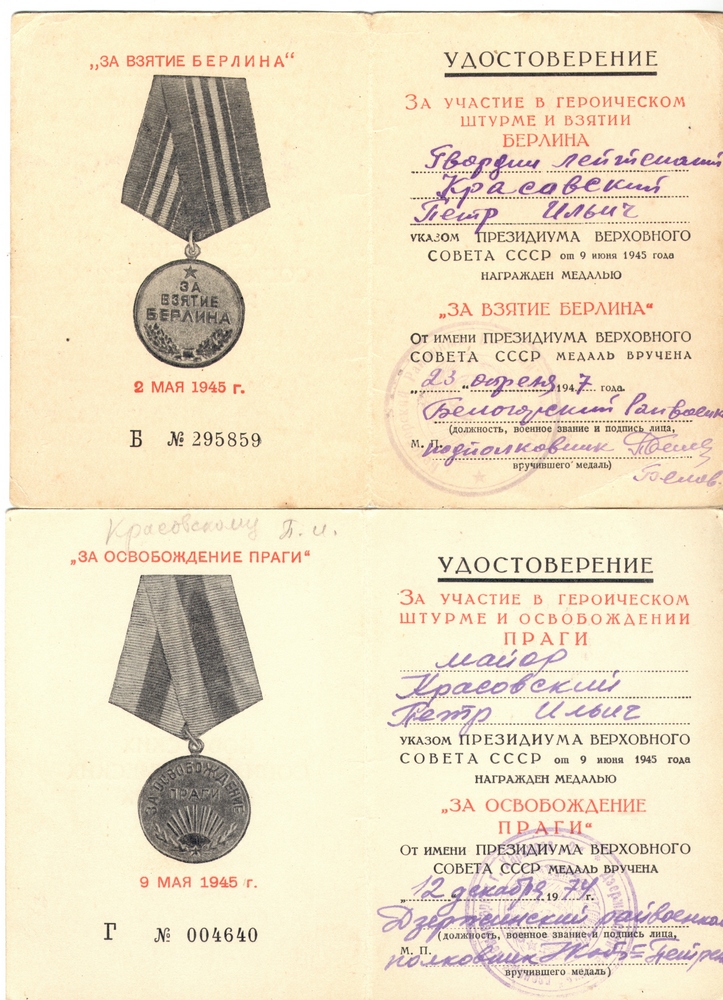 „ЗА ВЗЯТИЕ БЕРЛИНА“
ЗА
ВЗЯТИЕ
БЕРЛИНА
2 МАЯ 1945 г.
Б № 295859
УДОСТОВЕРЕНИЕ
ЗА УЧАСТИЕ В ГЕРОИЧЕСКОМ
ШТУРМЕ И ВЗЯТИИ
БЕРЛИНА
Гвардии лейтенант
Красавский
Петр Ильич
УКАЗОМ ПРЕЗИДИУМА ВЕРХОВНОГО
СОВЕТА СССР от 9 июня 1945 года
НАГРАЖДЕН МЕДАЛЬЮ
„ЗА ВЗЯТИЕ БЕРЛИНА“
От имени ПРЕЗИДИУМА ВЕРХОВНОГО
СОВЕТА СССР МЕДАЛЬ ВРУЧЕНА
„23“ апреля 1947 года.
Белогорский Райвоенк
(должность, военное звание и подпись лица,
М. П. подполковник
вручившего медаль)
Красовскому П. И.
„ЗА ОСВОБОЖДЕНИЕ ПРАГИ“
ЗА ОСВОБОЖДЕНИЕ
ПРАГИ
9 МАЯ 1945 г.
Г № 004640
УДОСТОВЕРЕНИЕ
ЗА УЧАСТИЕ В ГЕРОИЧЕСКОМ
ШТУРМЕ И ОСВОБОЖДЕНИИ
ПРАГИ
майор
Красовский
Петр Ильич
УКАЗОМ ПРЕЗИДИУМА ВЕРХОВНОГО
СОВЕТА СССР от 9 июня 1945 года
НАГРАЖДЕН МЕДАЛЬЮ
„ЗА ОСВОБОЖДЕНИЕ
ПРАГИ“
От имени ПРЕЗИДИУМА ВЕРХОВНОГО
СОВЕТА СССР МЕДАЛЬ ВРУЧЕНА
„12“ декабря 1974 г.
Дзержинский райвоенком
(должность, военное звание и подпись лица,
М. П.
полковник
вручившего медаль)